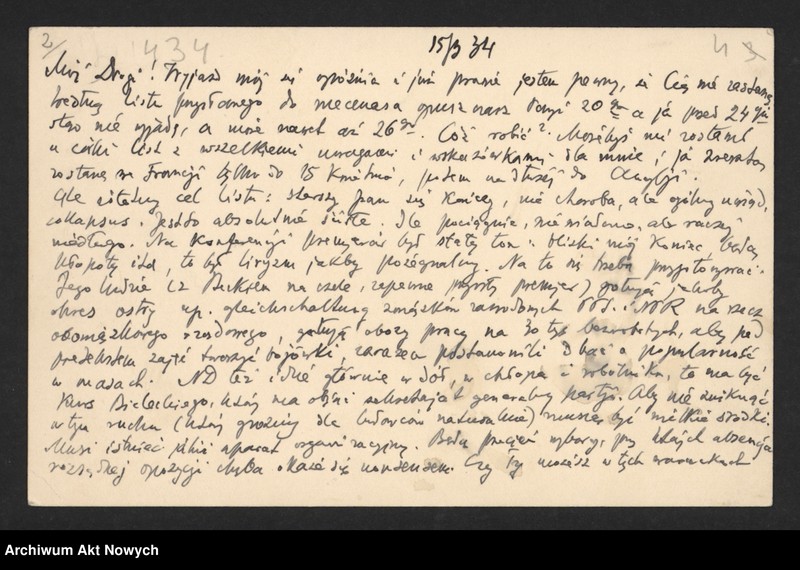 2/ 434 15/3 34 43
Mój Drogi! Przyjazd mój się opóźnia i już prawie jestem pewny, że Cię nie zastanę,
według listu przysłanego do mecenasa ruszasz 20 go a ja przed 24 ym
stąd nie wyjadę, a może nawet aż 26 go. Cóż robić? Możebyś mi zostawił
u córki list z wszelkiemi uwagami i wskazówkami dla mnie; ja zresztą
zostanę we Francji tylko do 15 kwietnia, potem na dłużej do Anglji.
Ale istotny cel listu: starszy pan się kończy, nie choroba, ale ogólny uwiąd,
collapsus. Jest to absolutnie ścisłe. Ile pociągnie, niewiadomo, ale raczej
niedługo. Na konferencji premjerów był stały ton: bliski mój koniec, będą
kłopoty itd, to był liryzm jakby pożegnalny. Na to się trzeba przygotowywać.
Jego ludzie (z Beckiem na czele, zapewne przyszły premjer) gotują jakby
okres ostry np. gleichschaltung związków zawodowych PPS. i NPR na rzecz
obowiązkowego rządowego, gotują obozy pracy na 30 tys bezrobotnych, aby pod
pretekstem zajęć tworzyć bojówki, zarazem postanowili dbać o popularność
w masach. ND też idzie głównie w dół, w chłopa i robotnika, to ma być
kurs Bieleckiego, który ma objąć sekretarjat generalny partji. Aby nie zniknąć
w tym ruchu (który groźny dla ludowców naturalnie) muszą być wielkie środki.
Musi istnieć jakiś aparat organizacyjny. Będą przecież wybory, przy których abstencja
rozsądnej opozycji chyba okaże się nonsensem. Czy Ty możesz w tych warunkach
Archiwum Akt Nowych